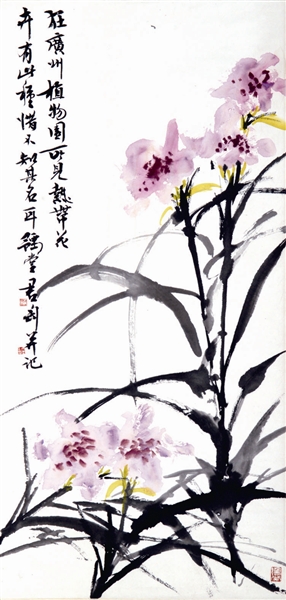 在廣州植物園所見熱帶花
卉有此種惜不知其名耳堂君并记